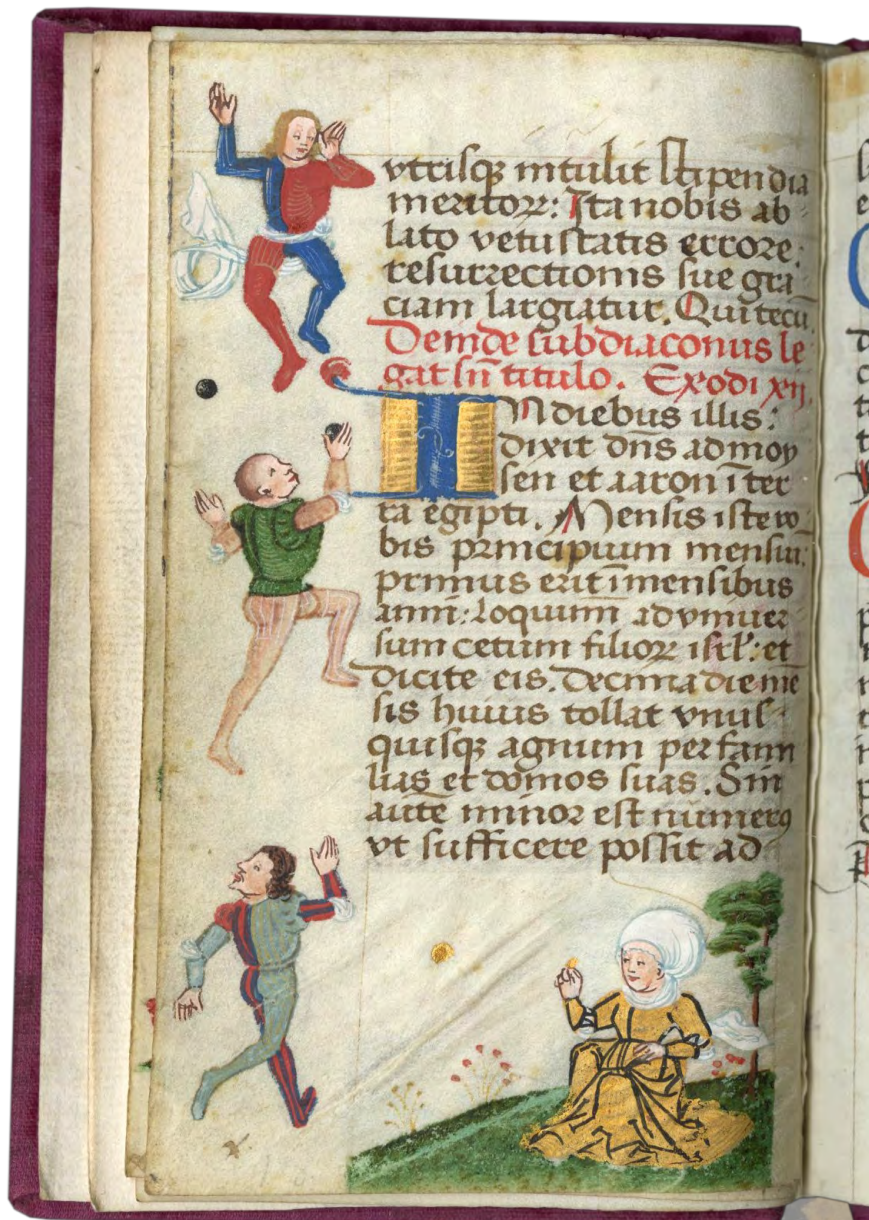 vtrisqꝫ intulit stipendia
meritoꝝ: Ita nobis ab-
lato vetustatis errore:
resurrectionis sue gra-
ciam largiatur. Qui tecū
Deinde subdiaconus le-
gat sn̄ titulo. Exodi xij.
IN diebus illis:
dixit dn̄s ad moy
sen et aaron ī ter
ra egipti. Mensis iste vo
bis principium mensiū:
primus erit ī mensibus
anni: Loquimī ad vniuer
sum cetum filioꝝ isrl̄: et
dicite eis. Decima die mē
sis huius tollat vnus-
quisqꝫ agnum per fami
lias et domos suas. Sin
autē minor est numerꝰ
vt sufficere possit ad